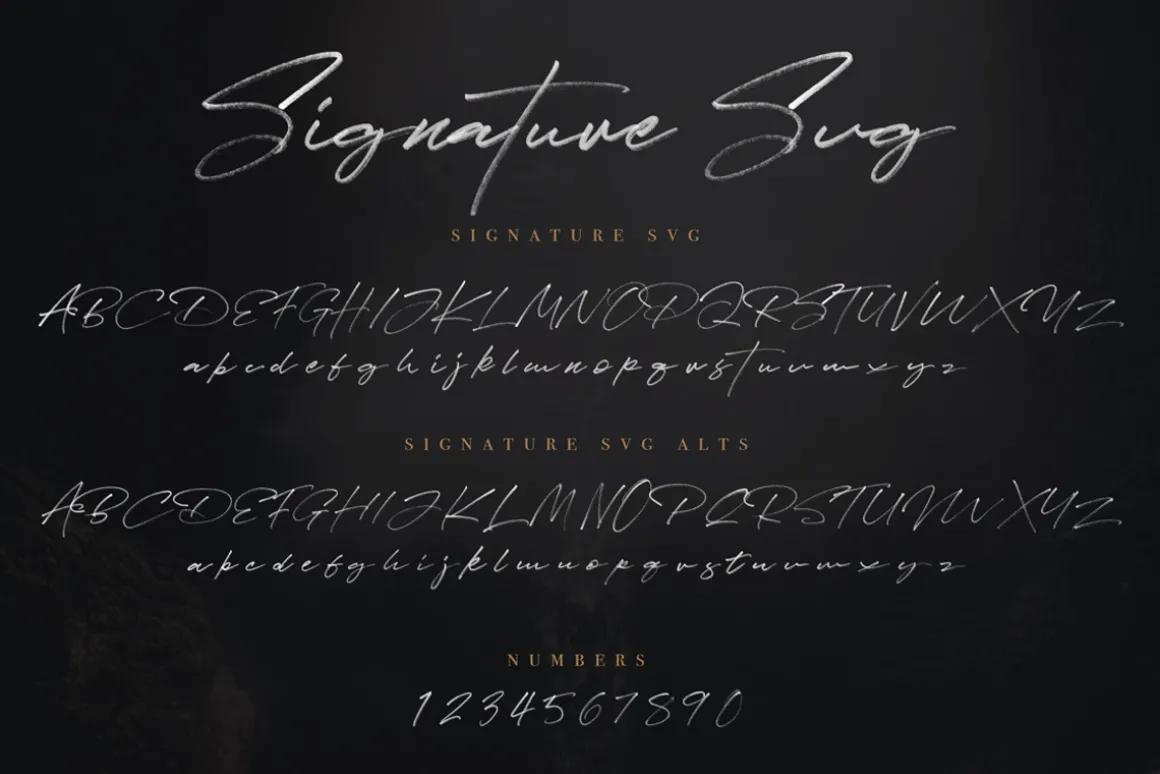 Signature Svg
SIGNATURE SVG
ABCDEFGHIJKLMNOPQRSTUVWXYZ
abcdefghijklmnopqrstuvwxyz
SIGNATURE SVG ALTS
ABCDEFGHIJKLMNOPQRSTUVWXYZ
abcdefghijklmnopqrstuvwxyz
NUMBERS
1234567890